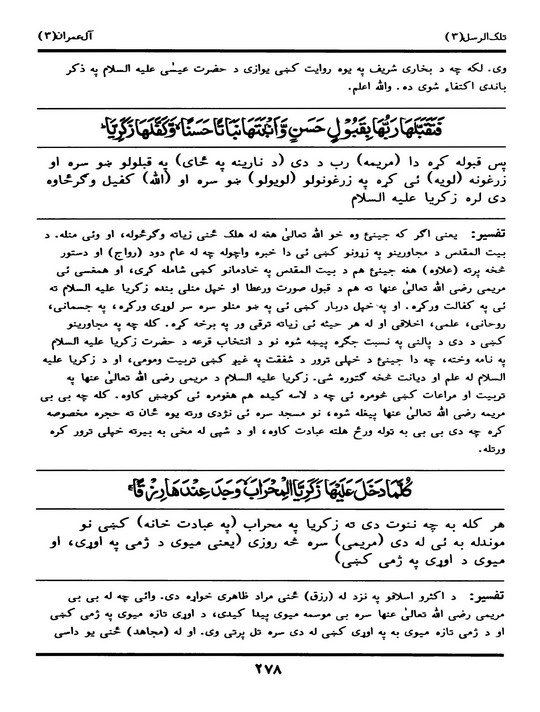 تلک الرسل(٣)
آل عمران(٣)
وی. لکه چه د بخاری شریف په یوه روایت کښی یوازی د حضرت عیسٰی علیه السلام په ذکر
باندی اکتفاء شوی ده. والله اعلم.
فَتَقَبَّلَهَا رَبُّهَا بِقَبُوْلٍ حَسَنٍ وَّاَنْۢبَتَهَا نَبَاتًا حَسَنًا ۙ وَّكَفَّلَهَا زَكَرِيَّا ؕ
پس قبوله کړه دا (مریمه) رب د دی (د نارینه په ځای) په قبلولو ښو سره او
زرغونه (لویه) ئی کړه په زرغونولو (لویولو) ښو سره او (الله) کفیل وګرځاوه
دی لره زکریا علیه السلام
تفسیر: یعنی اگر که جینئ وه خو الله تعالیٰ هغه له هلک څنی زیاته وګرځوله، او وئی منله. د
بیت المقدس د مجاورینو په زړونو کښی ئی دا خبره واچوله چه له عام دود (رواج) او دستور
څخه پرته (علاوه) هغه جینئ هم د بیت المقدس په خادمانو کښی شامله کړی، او همغسی ئی
مریمی رضی الله تعالیٰ عنها ته هم د قبول صورت ورعطا او خپل منلی بنده زکریا علیه السلام ته
ئی په کفالت ورکړه. او په خپل دربار کښی ئی په ښو منلو سره سر لوړی ورکړه، په جسمانی،
روحانی، علمی، اخلاقی او له هر حیثه ئی زیاته ترقی ور په برخه کړه. کله چه په مجاورینو
کښی د دی د پالنی په نسبت جګړه پیښه شوه نو د انتخاب قرعه د حضرت زکریا علیه السلام
په نامه وخته، چه دا جینئ د خپلی ترور د شفقت په غیږ کښی تربیت ومومی، او د زکریا علیه
السلام له علم او دیانت څخه ګتوره شی. زکریا علیه السلام د مریمی رضی الله تعالیٰ عنها په
تربیت او مراعات کښی څومره ئی چه د لاسه کیده هم هغومره ئی کوښښ کاوه. کله چه بی بی
مریمه رضی الله تعالیٰ عنها پیغله شوه، نو مسجد سره ئی نژدی ورته یوه ځان ته حجره مخصوصه
کړه چه دی بی بی به توله ورځ هلته عبادت کاوه، او د شپی له مخی به بیرته خپلی ترور کره
ورتله.
كُلَّمَا دَخَلَ عَلَيْهَا زَكَرِيَّا الْمِحْرَابَ ۙ وَجَدَ عِنْدَهَا رِزْقًا ۚ
هر کله به چه ننوت دی ته زکریا په محراب (په عبادت خانه) کښی نو
موندله به ئی له دی (مریمی) سره څه روزی (یعنی میوی د ژمی په اوړی، او
میوی د اوړی په ژمی کښی)
تفسیر: د اکثرو اسلافو په نزد له (رزق) څنی مراد ظاهری خواړه دی. وائی چه له بی بی
مریمی رضی الله تعالیٰ عنها سره بی موسمه میوی پیدا کیدی، د اوړی تازه میوی په ژمی کښی
او د ژمی تازه میوی به په اوړی کښی له دی سره تل پرتی وی. او له (مجاهد) څنی یو داسی
٢٧٨